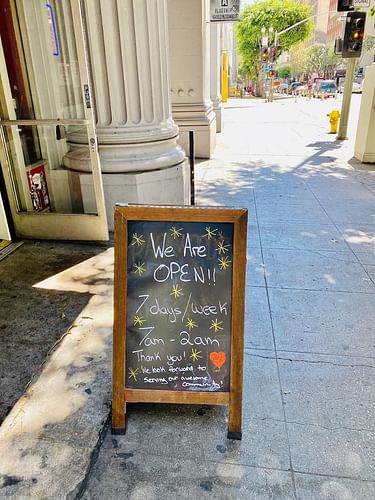 We Are
OPEN!!
7 days/week
7am - 2am
Thank you!
We look forward to
serving our awesome
community!